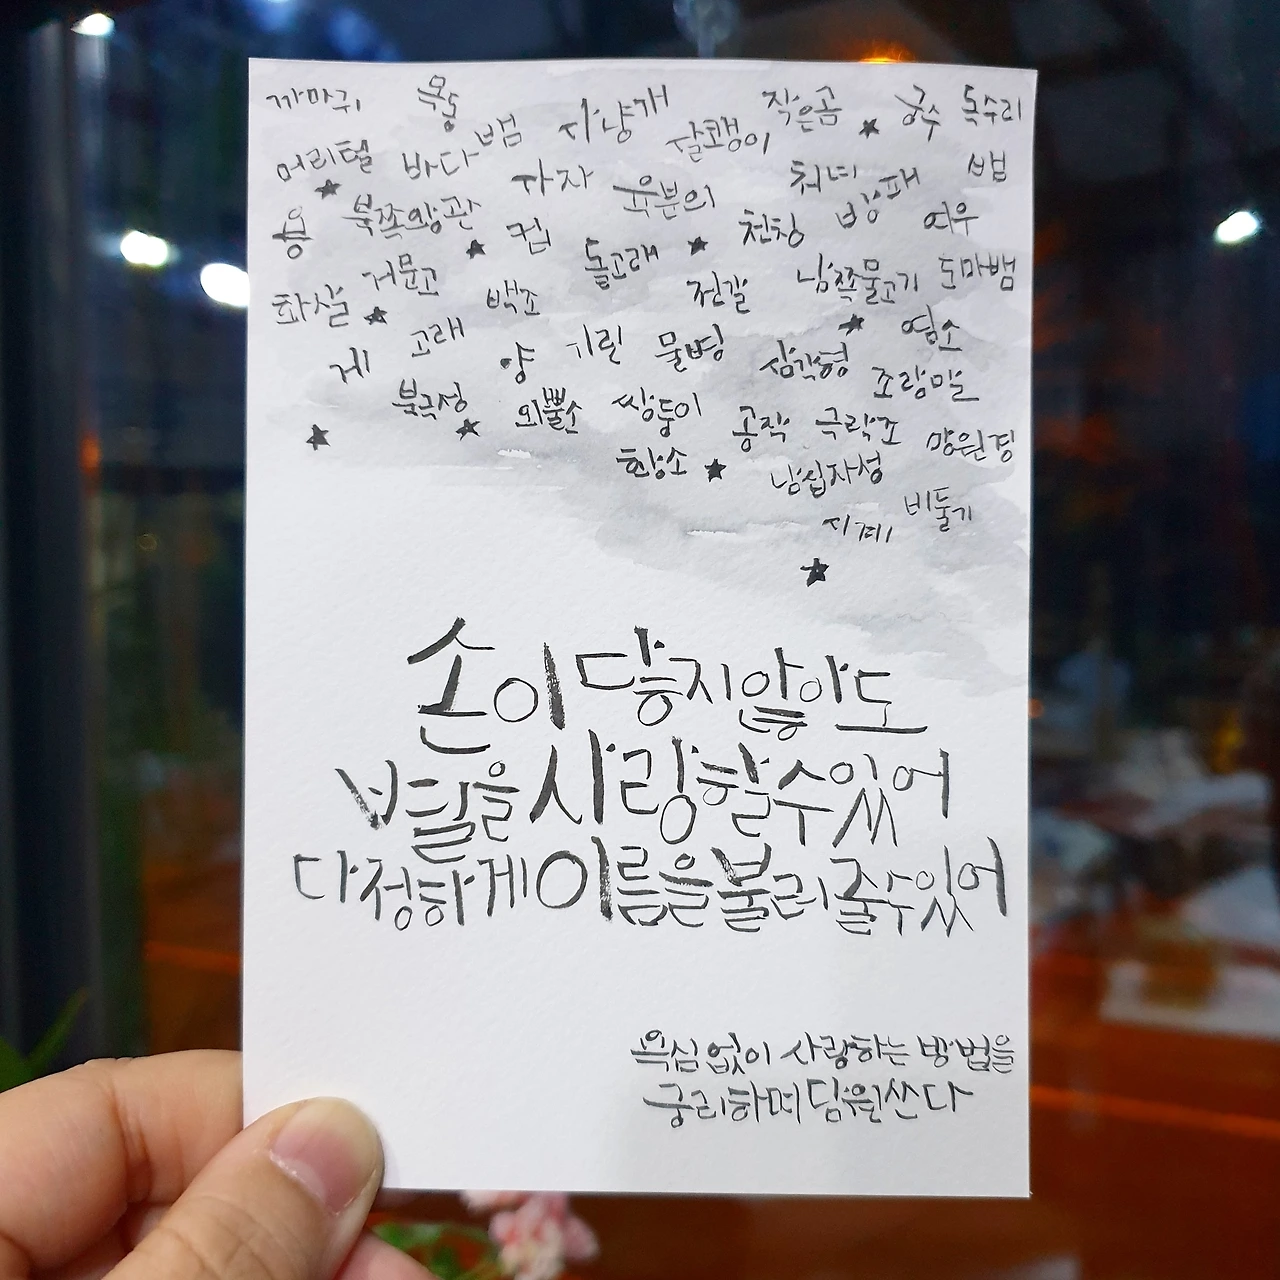 까마귀 목동 뱀 사냥개 살쾡이 작은곰 궁수 독수리
머리털 바다뱀 사자 육분의 처녀 방패 뱀
용 북쪽왕관 컵 돌고래 천칭 여우
거문고 백조 전갈 남쪽물고기 도마뱀
화살 고래 양 기린 물병 삼각형 염소
게 북극성 외뿔소 쌍둥이 조랑말
황소 공작 극락조 망원경
남십자성
시계 비둘기
손이 닿지 않아도
별을 사랑할 수 있어
다정하게 이름을 불러 줄 수 있어
욕심없이 사랑하는 방법을
궁리하며 담원쓰다